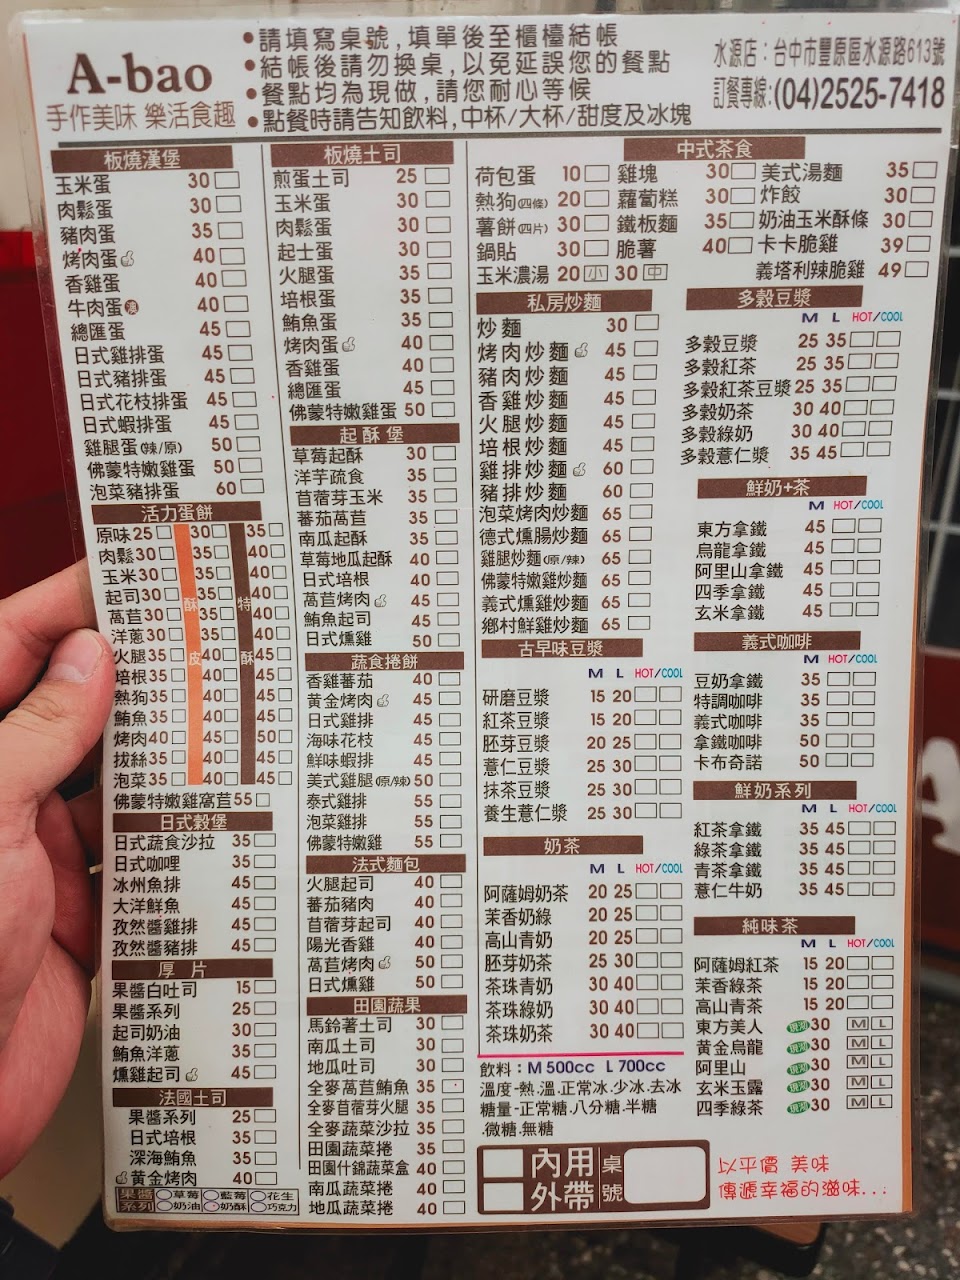 A-bao
手作美味 樂活食趣
•請填寫桌號,填單後至櫃檯結帳
•結帳後請勿換桌,以免延誤您的餐點
•餐點均為現做,請您耐心等候
•點餐時請告知飲料,中杯/大杯/甜度及冰塊
水源店：台中市豐原區水源路613號
訂餐專線:(04)2525-7418
板燒漢堡
玉米蛋 30
肉鬆蛋 30
豬肉蛋 35
烤肉蛋 40
香雞蛋 40
牛肉蛋 40
總匯蛋 45
日式雞排蛋 45
日式豬排蛋 45
日式花枝排蛋 45
日式蝦排蛋 45
雞腿蛋(辣/原) 50
佛蒙特嫩雞蛋 50
泡菜豬排蛋 60
活力蛋餅
酥皮
特酥
原味25 30 35
肉鬆30 35 40
玉米30 35 40
起司30 35 40
萵苣30 35 40
洋蔥30 35 40
火腿35 40 45
培根35 40 45
熱狗35 40 45
鮪魚35 40 45
烤肉40 45 50
拔絲35 40 45
泡菜35 40 45
佛蒙特嫩雞窩苣55
日式穀堡
日式蔬食沙拉 35
日式咖哩 35
冰州魚排 45
大洋鮮魚 45
孜然醬雞排 45
孜然醬豬排 45
厚片
果醬白吐司 15
果醬系列 25
起司奶油 30
鮪魚洋蔥 35
燻雞起司 45
法國土司
果醬系列 25
日式培根 35
深海鮪魚 35
黃金烤肉 40
果醬系列 草莓 藍莓 花生
奶油 奶酥 巧克力
板燒土司
煎蛋土司 25
玉米蛋 30
肉鬆蛋 30
起士蛋 30
火腿蛋 35
培根蛋 35
鮪魚蛋 35
烤肉蛋 40
香雞蛋 40
總匯蛋 45
佛蒙特嫩雞蛋 50
起酥堡
草莓起酥 30
洋芋蔬食 35
苜蓿芽玉米 35
蕃茄萵苣 35
南瓜起酥 35
草莓地瓜起酥 40
日式培根 40
萵苣烤肉 45
鮪魚起司 45
日式燻雞 50
蔬食捲餅
香雞蕃茄 40
黃金烤肉 45
日式雞排 45
海味花枝 45
鮮味蝦排 45
美式雞腿(原/辣) 50
泰式雞排 55
泡菜雞排 55
佛蒙特嫩雞 55
法式麵包
火腿起司 40
蕃茄豬肉 40
苜蓿芽起司 40
陽光香雞 40
萵苣烤肉 50
日式燻雞 50
田園蔬果
馬鈴薯土司 30
南瓜土司 30
地瓜吐司 30
全麥萵苣鮪魚 35
全麥苜蓿芽火腿 35
全麥蔬菜沙拉 35
田園蔬菜捲 35
田園什錦蔬菜盒 40
南瓜蔬菜捲 40
地瓜蔬菜捲 40
中式茶食
荷包蛋 10 雞塊 30 美式湯麵 35
熱狗(四條) 20 蘿蔔糕 30 炸餃 30
薯餅(四片) 30 鐵板麵 35 奶油玉米酥條 30
鍋貼 30 脆薯 40 卡卡脆雞 39
玉米濃湯 20 小 30 中 義塔利辣脆雞 49
私房炒麵
炒麵 30
烤肉炒麵 45
豬肉炒麵 45
香雞炒麵 45
火腿炒麵 45
培根炒麵 45
雞排炒麵 60
豬排炒麵 60
泡菜烤肉炒麵 65
德式燻腸炒麵 65
雞腿炒麵(原/辣) 65
佛蒙特嫩雞炒麵 65
義式燻雞炒麵 65
鄉村鮮雞炒麵 65
古早味豆漿
M L HOT/COOL
研磨豆漿 15 20
紅茶豆漿 15 20
胚芽豆漿 20 25
薏仁豆漿 25 30
抹茶豆漿 25 30
養生薏仁漿 25 30
奶茶
M L HOT/COOL
阿薩姆奶茶 20 25
茉香奶綠 20 25
高山青奶 20 25
胚芽奶茶 25 30
茶珠青奶 30 40
茶珠綠奶 30 40
茶珠奶茶 30 40
飲料：M 500cc L 700cc
溫度-熱.溫.正常冰.少冰.去冰
糖量-正常糖.八分糖.半糖
.微糖.無糖
多穀豆漿
M L HOT/COOL
多穀豆漿 25 35
多穀紅茶 25 35
多穀紅茶豆漿 25 35
多穀奶茶 30 40
多穀綠奶 30 40
多穀薏仁漿 35 45
鮮奶+茶
M HOT/COOL
東方拿鐵 45
烏龍拿鐵 45
阿里山拿鐵 45
四季拿鐵 45
玄米拿鐵 45
義式咖啡
M HOT/COOL
豆奶拿鐵 35
特調咖啡 35
義式咖啡 35
拿鐵咖啡 50
卡布奇諾 50
鮮奶系列
M L HOT/COOL
紅茶拿鐵 35 45
綠茶拿鐵 35 45
青茶拿鐵 35 45
薏仁牛奶 35 45
純味茶
M L HOT/COOL
阿薩姆紅茶 15 20
茉香綠茶 15 20
高山青茶 15 20
東方美人 現泡 30 M L
黃金烏龍 現泡 30 M L
阿里山 現泡 30 M L
玄米玉露 現泡 30 M L
四季綠茶 現泡 30 M L
內用
外帶
桌號
以平價 美味
傳遞幸福的滋味...